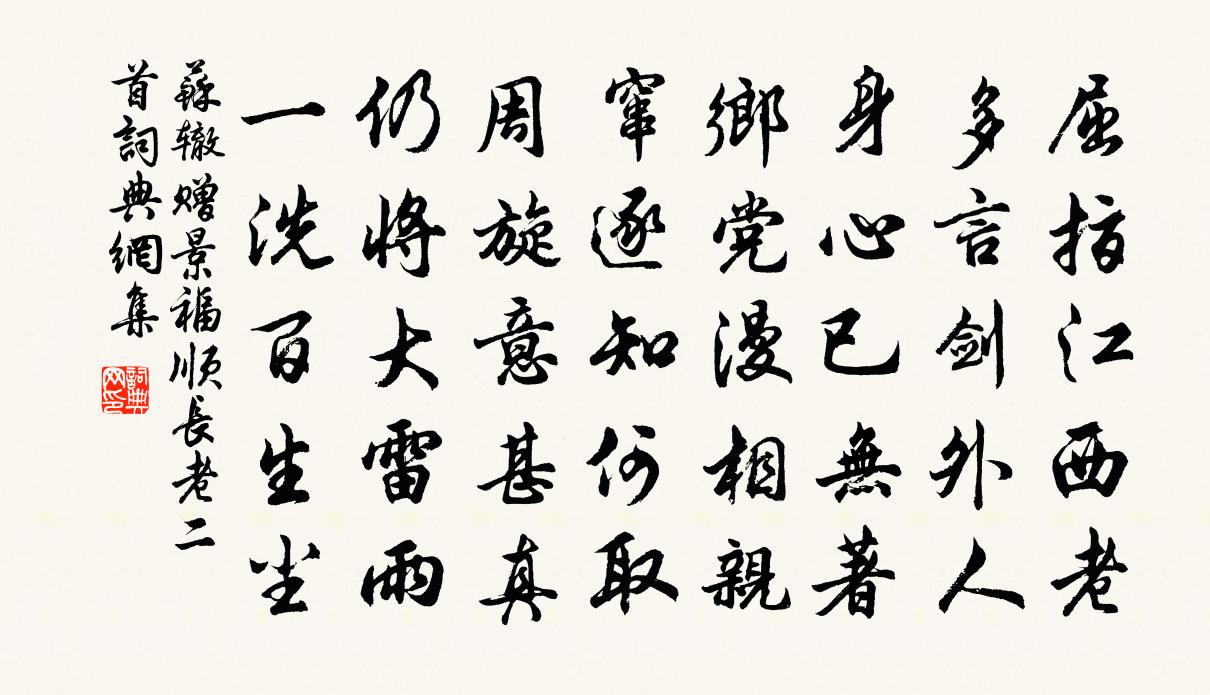 屈指江西老
多言劍外人
身心已無著
鄉党漫相親
竄逐知何取
周旋意甚真
仍將大雷雨
一洗百生塵
蘇辙赠景福順長老二
首詞典網集
詞典
网印